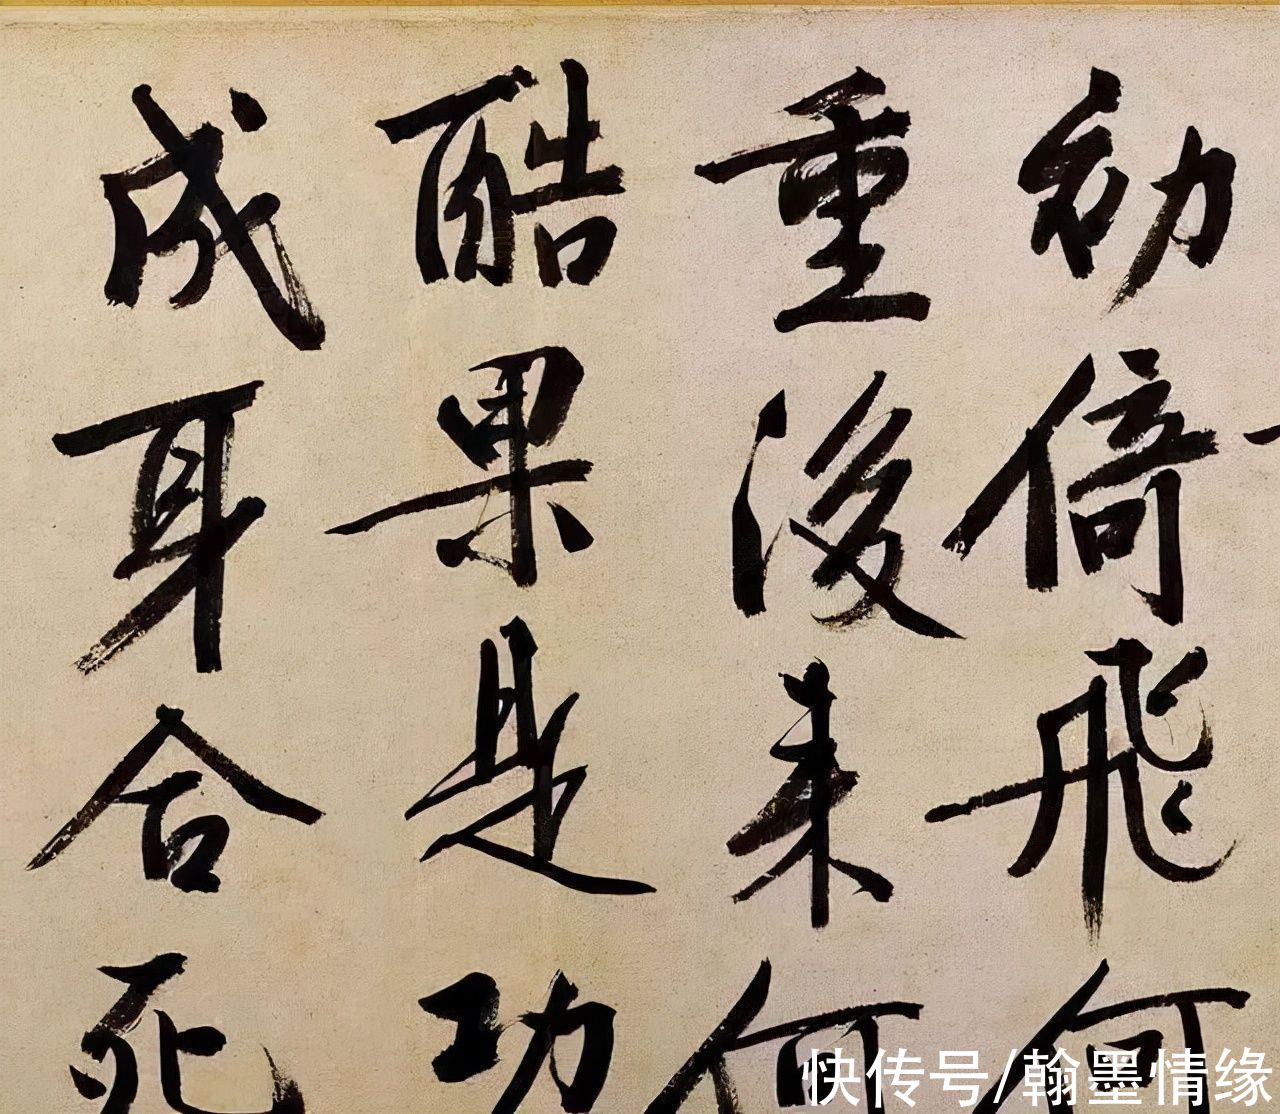 初倚飛何
重後来何
酷果是功
成身合死
快传号/翰墨情缘